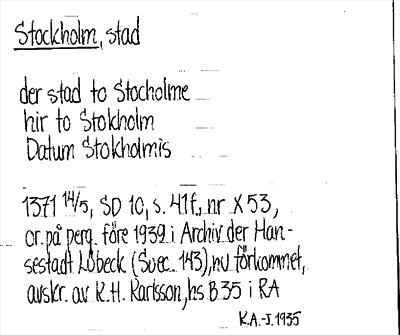 Stockholm, stad
der stad to Stocholme
hir to Stokholm
Datum Stokholmis
1371 14/5, SD 10, s. 41 f., nr X 53,
or. på perg. före 1939 i Archiv der Han-
sestadt Lübeck (Suec. 143), nu förkommet,
avskr. av K.H. Karlsson, hs B 35 i RA
K.A.-J. 1935